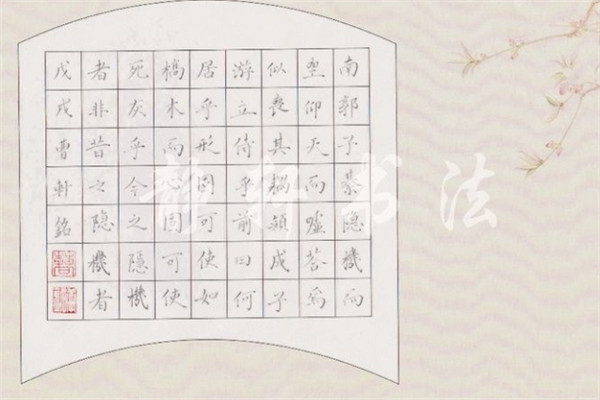 南郭子綦隐機而
坐仰天而噓荅焉
似喪其耦顔成子
游立侍乎前曰何
居乎形固可使如
槁木而心固可使
死灰乎今之隱機
者非昔之隐機者
戊戌曹軒銘
静轩书法